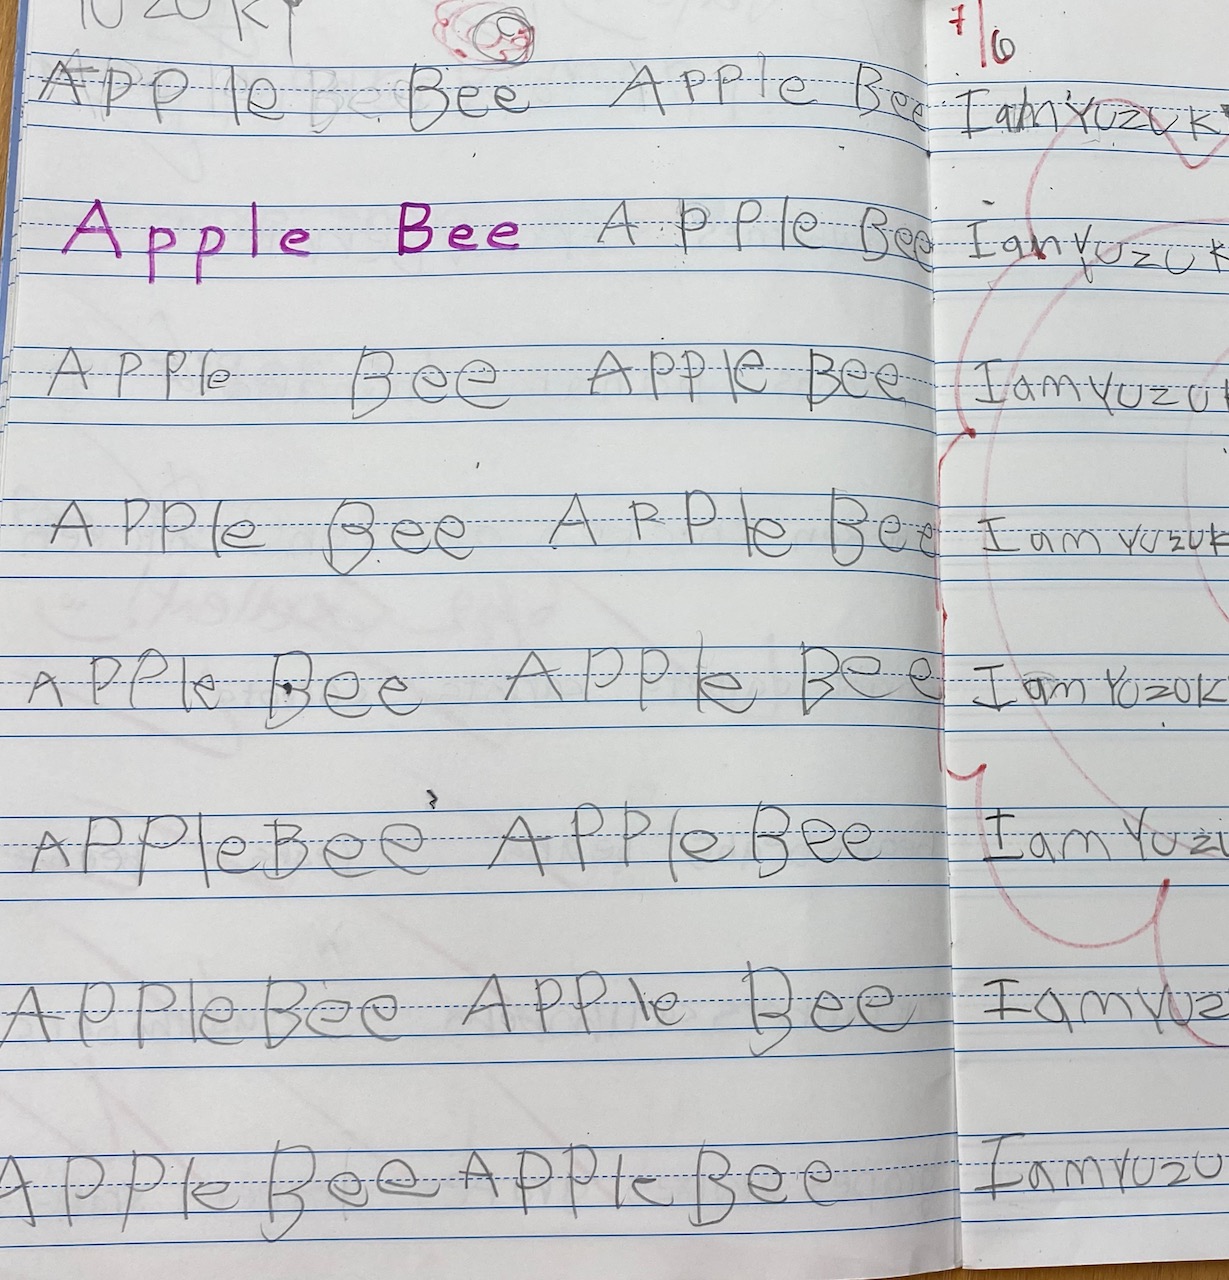 Apple Bee Apple Bee
Apple Bee Apple Bee
APPle Bee APPle Bee
APPle Bee APPle Bee
APPle Bee APPle Bee
APPleBee APPleBee
APPleBee APPle Bee
APPleBee APPleBee
7/6
I am Yuzuk
I am Yuzuk
I am Yuzu
I am Yuzuk
I am Yuzuk
I am Yuz
I am Yuz
I am Yuzu